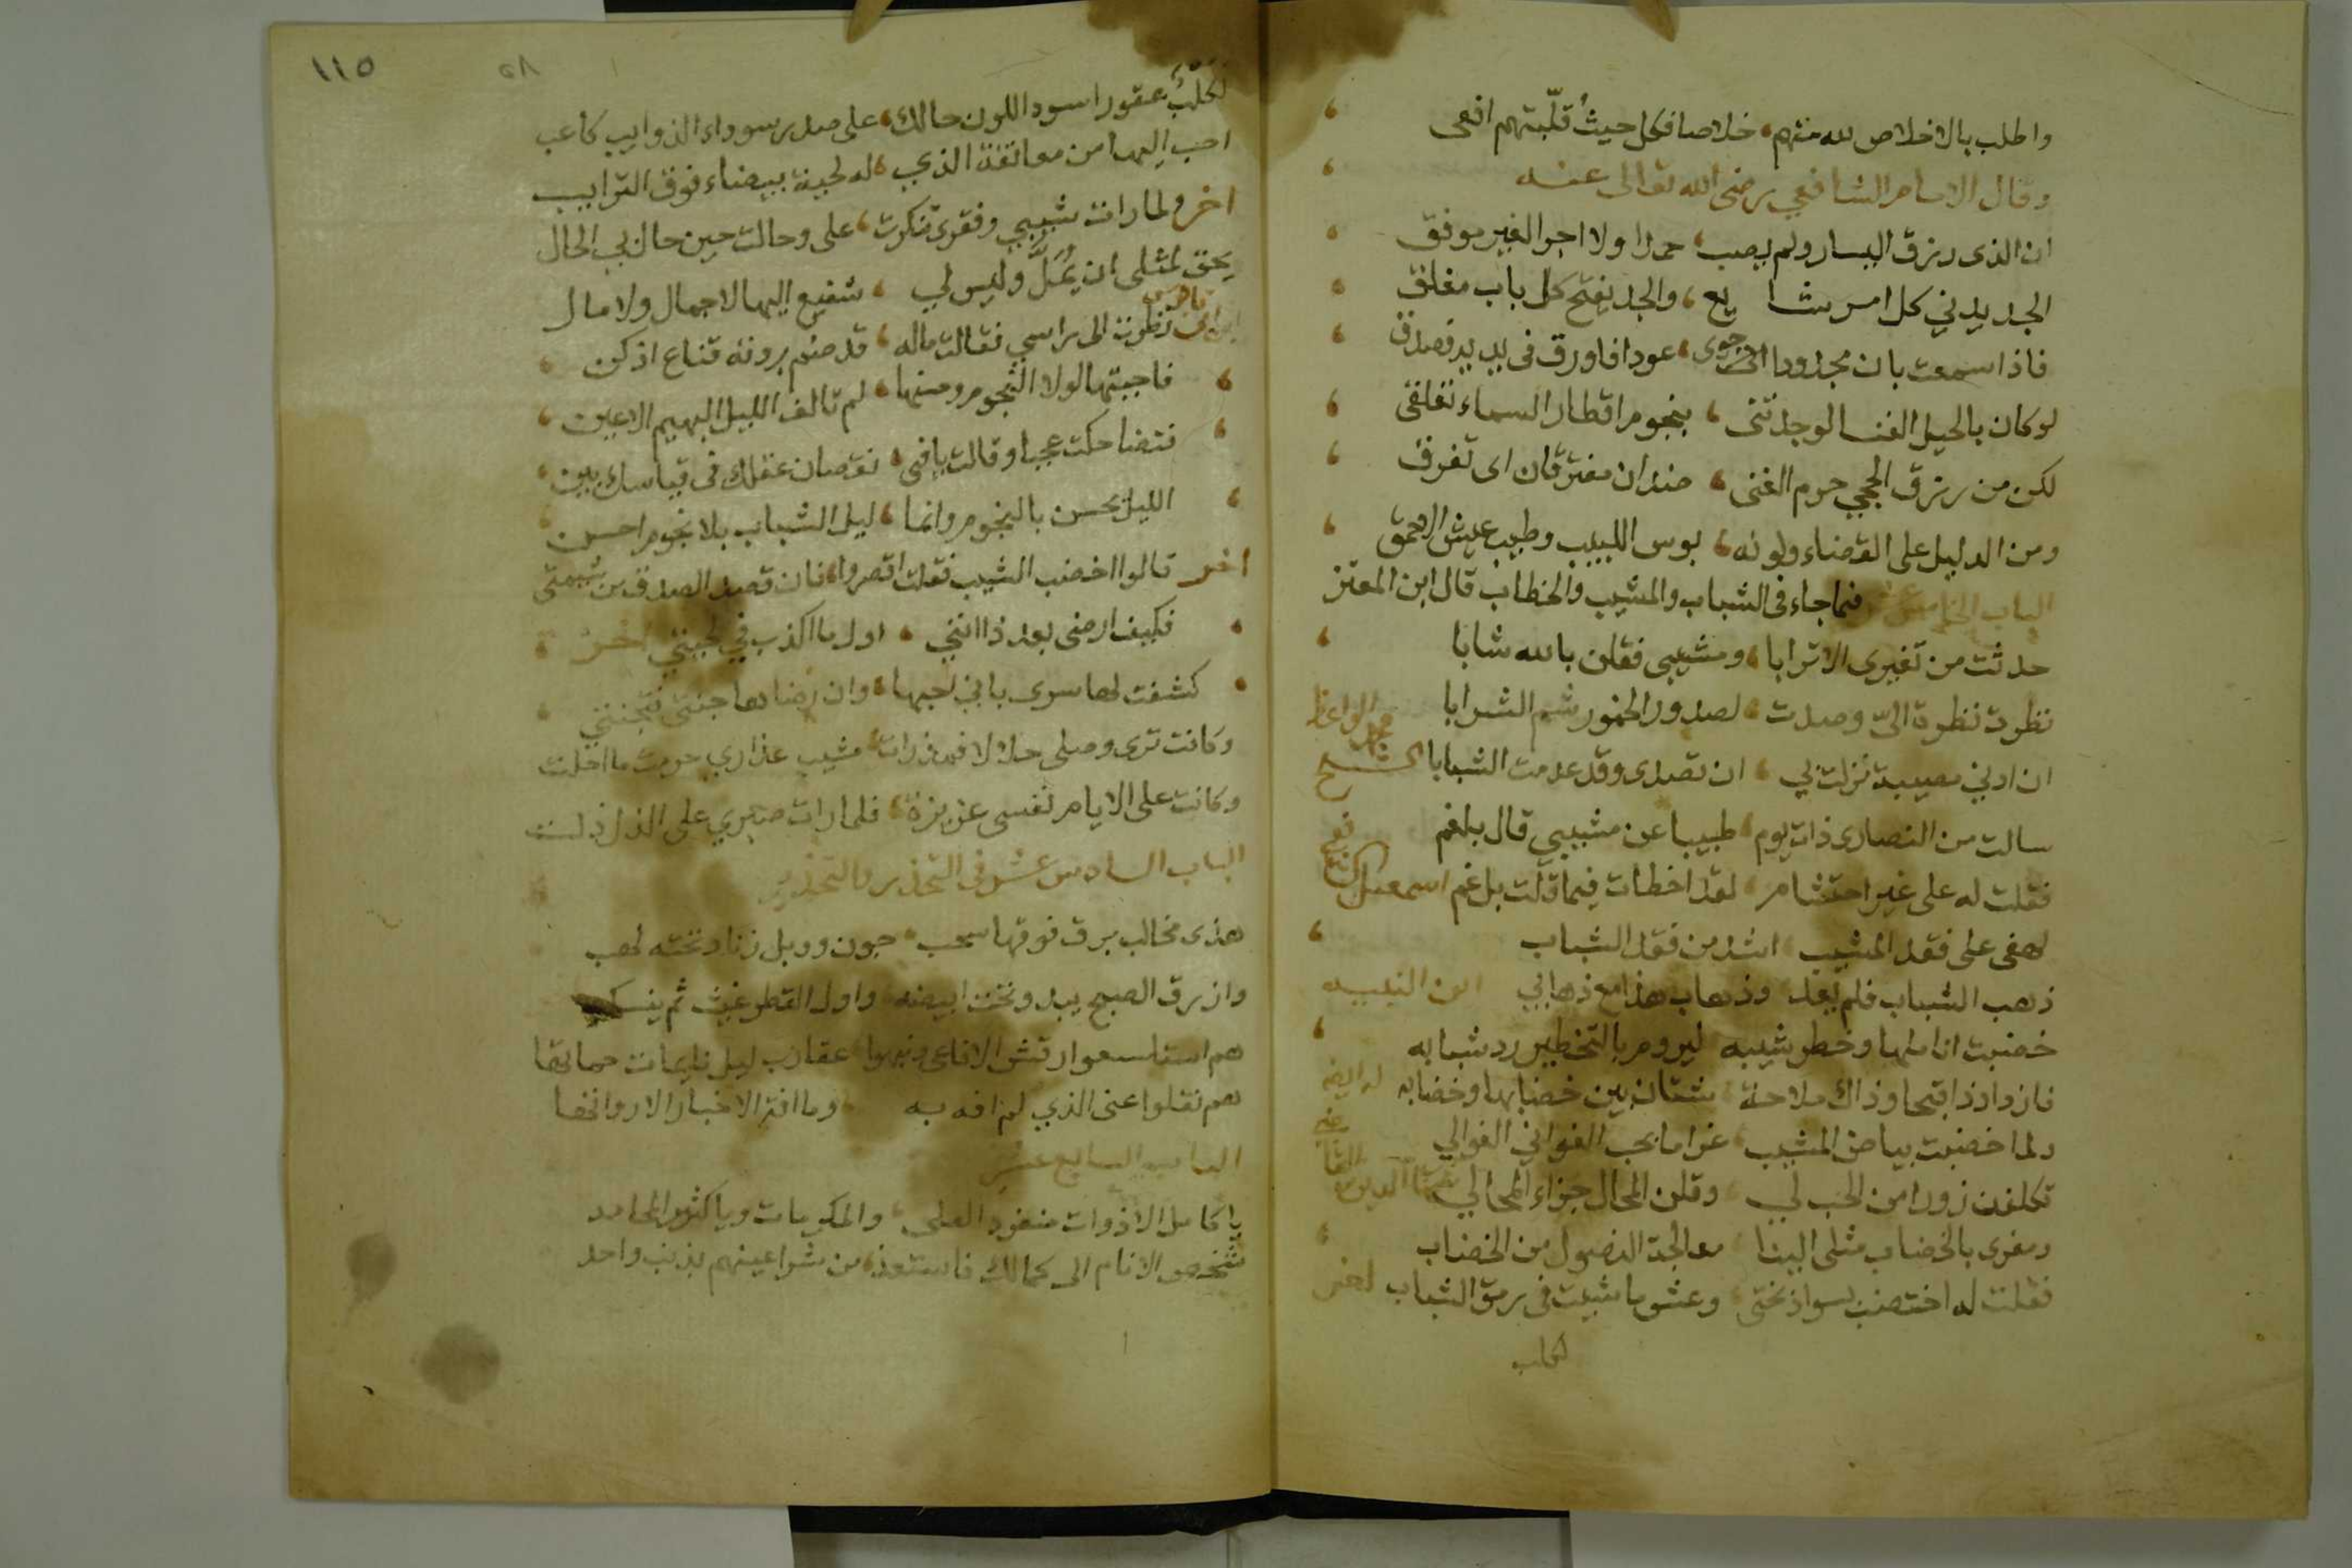 واطلب بالاخلاص لله منهم، خلاصا فكل حيثُ قلّبتهم افعى
وقال الامام الشافعي رضى الله تعالى عنه
ان الذى رزق اليسار ولم يصب، حمدا ولا اجرا لغير موفق
الجد يدني كل امر شا سع، والجد يفتح كل باب مغلق
فاذا سمعت بان مجدودا حوى، عودا فاورق فى يديه فصدق
لو كان بالحيل الغنا لوجدتنى، بنجوم اقطار السماء تعلقى
لكن من رزق الحجى حرم الغنى، ضدان مفترقان اى تفرق
ومن الدليل على القضاء وكونه، بوس اللبيب وطيب عيش الاحمق
الباب الخامس عشر فيما جاء فى الشباب والمشيب والخطاب قال ابن المعتز
حدثت من تغيرى الاترابا، ومشيبى فقلن بالله شابا
نظرت نظرة الىّ وصدت، لصدور المخمور شم الشرابا
ان ادنى مصيبة نزلت بي، ان تصدى وقد عدمت الشبابا الشيخ محمد الواعظ
سالت من النصارى ذات يوم، طبيبا عن مشيبي قال بلغم
فقلت له على غير احتشام، لقد اخطات فيما قلت بل غم اسمعيل
لهفى على فقد المشيب، اشد من فقد الشباب
ذهب الشباب فلم يعد، وذهاب هذا مع ذهابي ابن النبيه
خضبت اناملها وخطر شيبه، ليروم بالتخطير رد شبابه
فازداد ذا قبحا وذاك ملاحة، شتان بين خضابها وخضابه
ولما خضبت بياض المشيب، غراما بحب الغواني الغوالي
تكلفن زورا من الحب لي، وقلن المحال جزاء المحالي
ومغرى بالخضاب مثلى البنا، معالجة النصول من الخضاب
فقلت له اختضب بسواد بختى، وعش ما شيت فى رمق الشباب اخر
لكلب
١١٥
٥٨
لكلبٌ عقور اسود اللون حالك، على صدر سوداء الذوايب كاعب
احب اليها من معانقة الذي، له لحية بيضاء فوق الترايب
اخر ولما رات شيبي وفقرى تنكرت، على وحالت حين حال بي الحال
يحق لمثلى ان يُمَلَّ وليس لي، شفيع اليها لا جمال ولا مال
نظرت الى راسي فقالت ماله، قد ضم برونه قناع اذكن
فاجبتها لولا النجوم وحسنها، لم تالف الليل البهيم الاعين
فتضاحكت عجبا وقالت يافتى، نقصان عقلك فى قياسك بين
الليل يحسن بالنجوم وانما، ليل الشباب بلا نجوم احسن
اخر قالوا اخضب الشيب فقلت اقصروا، فان قصد الصدق من شيمتى
فكيف ارضى بعد ذا انني، اول ما اكذب في لحيتي اخر
كشفت لها سرى باني احبها، وان رضاها جنتي فتجنتي
وكانت ترى وصلى حلالا فمذ رات، مشيب عذاري حرمت ما احلت
وكانت على الايام نفسى عزيزة، فلما رات صبري على الذل ذلت
الباب السادس عشر فى التحذر والتحذير
هذى مخالب برق فوقها سحب، جون ووبل زناد تحته لهب
وازرق الصبح يبدو تحت ابيضه، واول القطر غيث ثم ينسكب
هم استلسعوا رقش الافاعى ونبهوا، عقارب ليل نايمات حماتها
هم نقلوا عنى الذي لم افه به، وما افة الاخبار الا رواتها
الباب السابع عشر
يا كامل الاذوات منفرد العلى، والمكرمات ويا كثير المحامد
شخص الانام الى كمالك فاستعذ، من شر اعينهم بذنب واحد